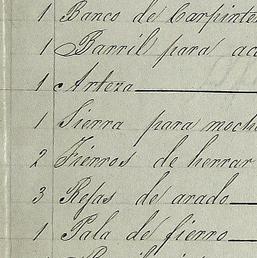 1 Banco de Carpinte
1 Barril para ac
1 Arteza
1 Sierra para moch
2 Fierros de herrar
3 Rejas de arado
1 Pala de fierro